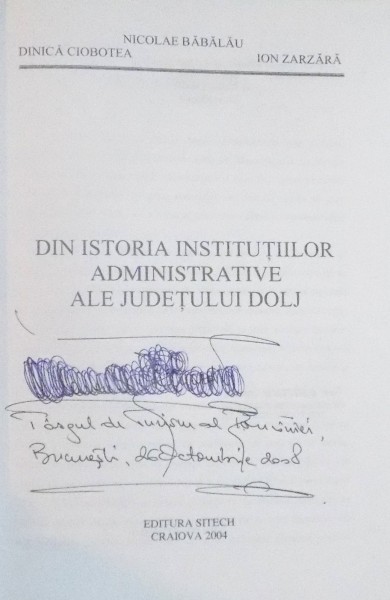 NICOLAE BĂBĂLĂU
DINICĂ CIOBOTEA
ION ZARZĂRĂ
DIN ISTORIA INSTITUȚIILOR
ADMINISTRATIVE
ALE JUDEȚULUI DOLJ
Târgul de Turism al României,
București, 26 Octombrie 2008
EDITURA SITECH
CRAIOVA 2004